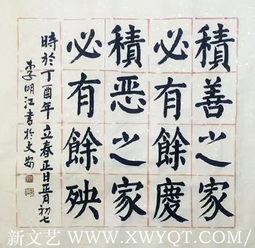 積善之家
必有餘慶
積恶之家
必有餘殃
時於丁酉年立春正日正月初七
李明江書於文安
新文艺 WWW.XWYQT.COM